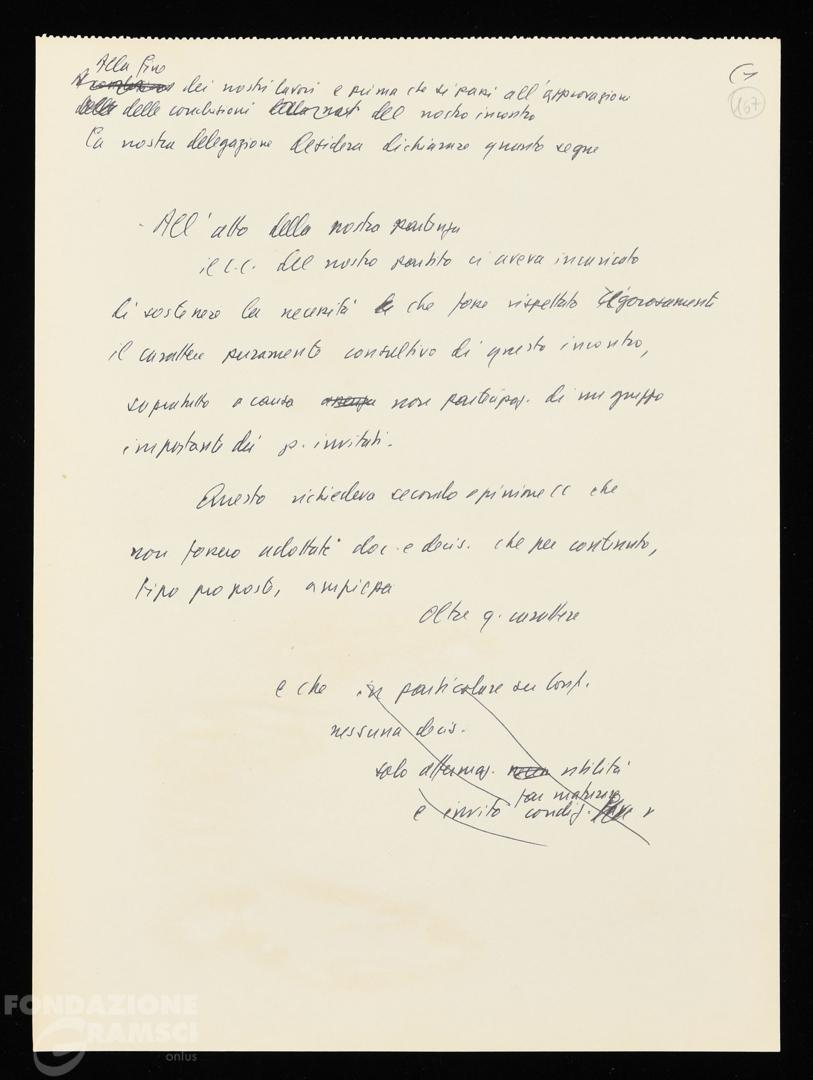 Alla fine
dei nostri lavori e prima che si passi all'approvazione
delle conclusioni del nostro incontro
la nostra delegazione desidera dichiarare quanto segue
(1
167
- All'atto della nostra partenza
il C.C. del nostro partito ci aveva incaricato
di sostenere la necessità che fosse rispettato rigorosamente
il carattere puramente consultivo di questo incontro,
sopratutto a causa non partecipaz. di un gruppo
importante dei p. invitati.
Questo richiedeva secondo opinione CC che
non fossero adottati doc. e decis. che per contenuto,
tipo proposte, ampiezza
oltre q. carattere
e che in particolare su Conf.
nessuna decis.
solo affermaz. utilità
e invito condiz.
FONDAZIONE
GRAMSCI
onlus